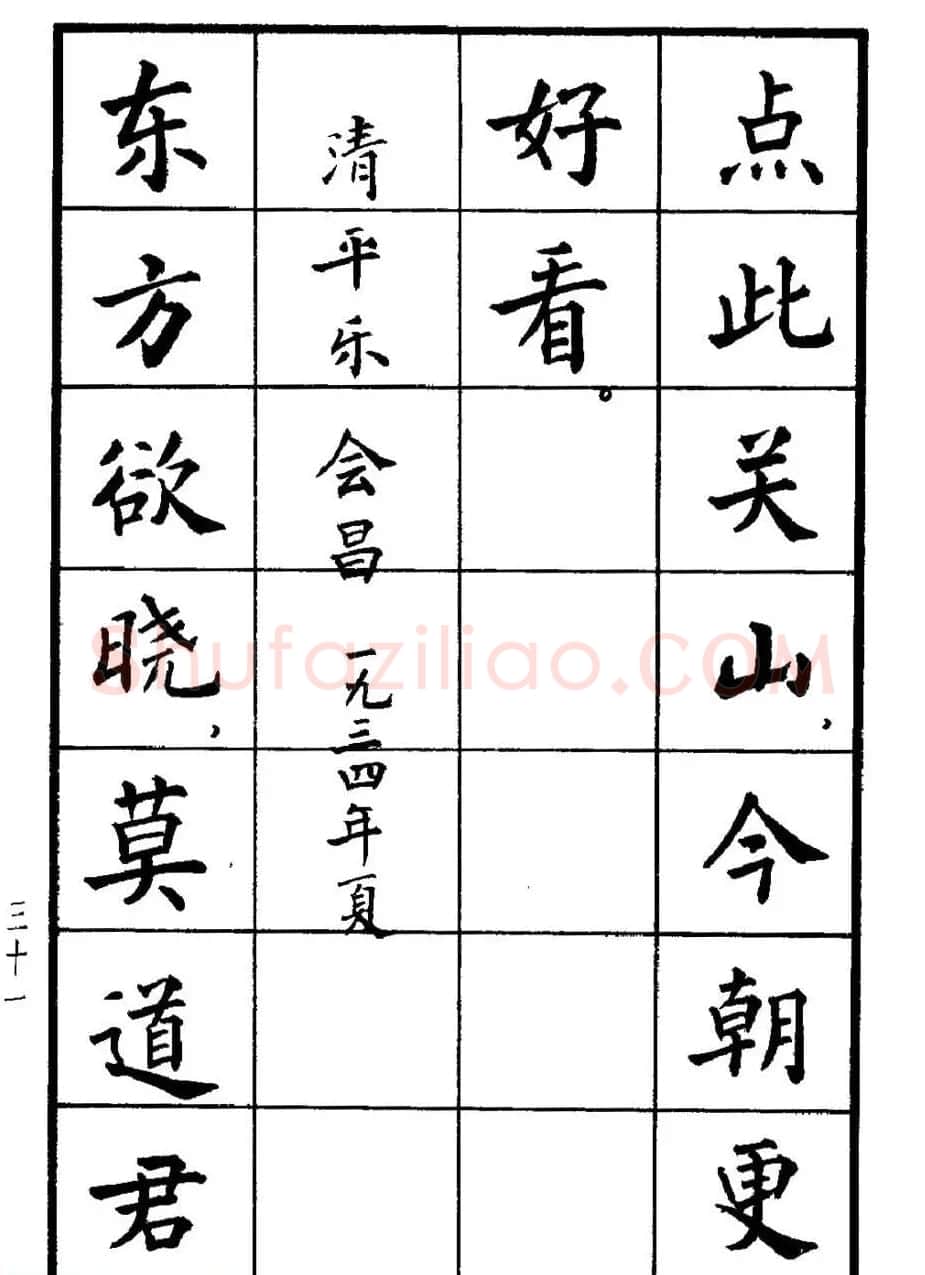 点此关山，今朝更
好看。
清平乐 会昌 一九三四年夏
东方欲晓，莫道君
三十一
Shufaziliao.COM